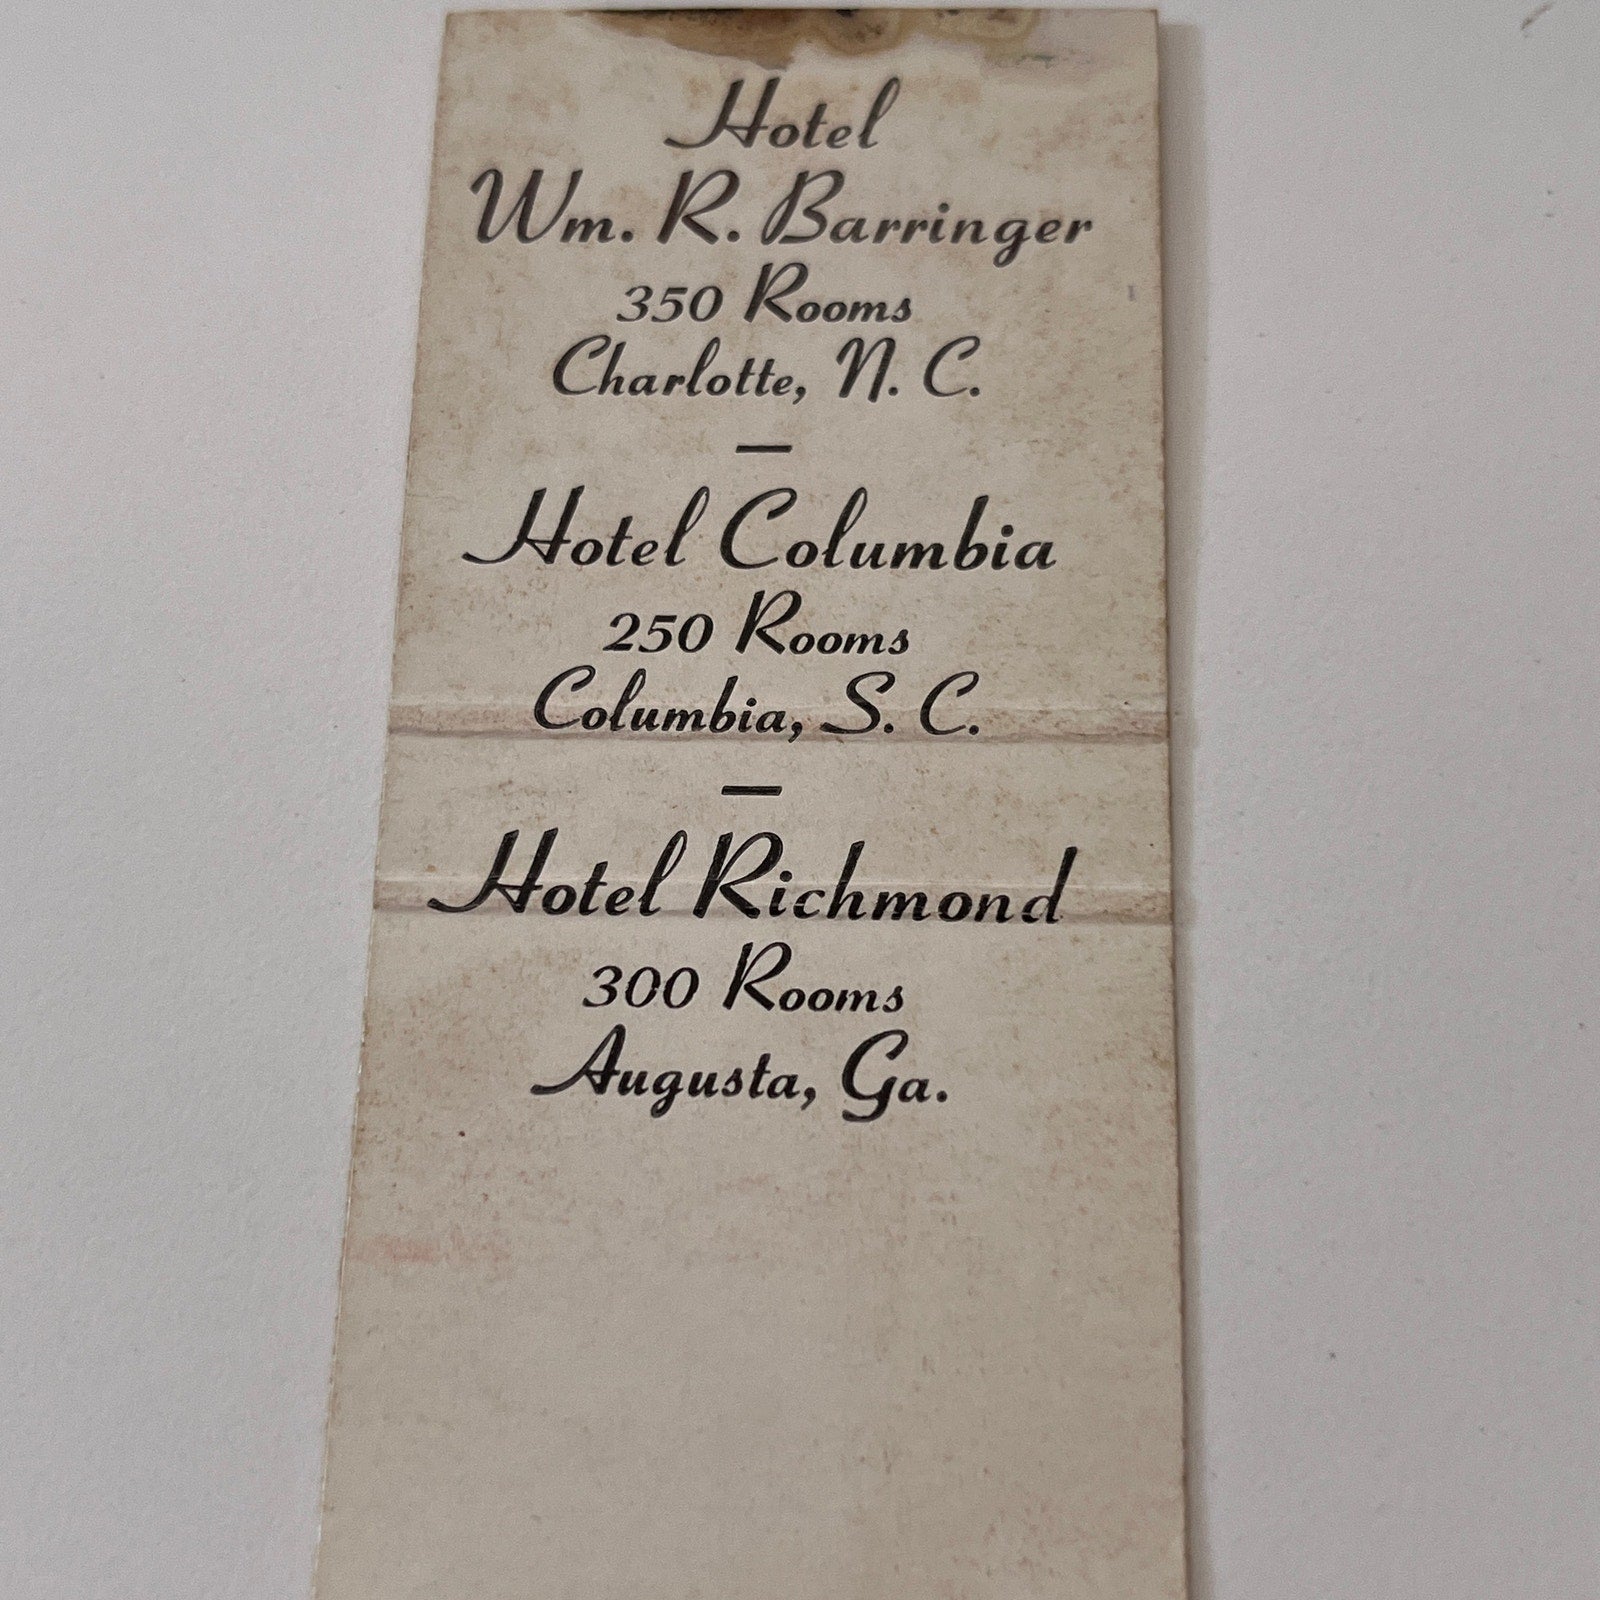 Hotel
Wm. R. Barringer
350 Rooms
Charlotte, N. C.
—
Hotel Columbia
250 Rooms
Columbia, S. C.
—
Hotel Richmond
300 Rooms
Augusta, Ga.